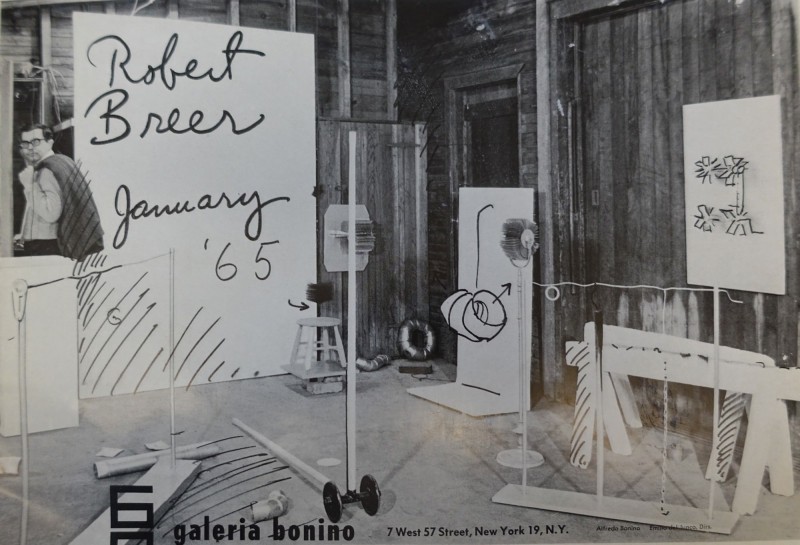 Robert
Breer
January
'65
galeria bonino
7 West 57 Street, New York 19, N.Y.
Alfredo Bonino